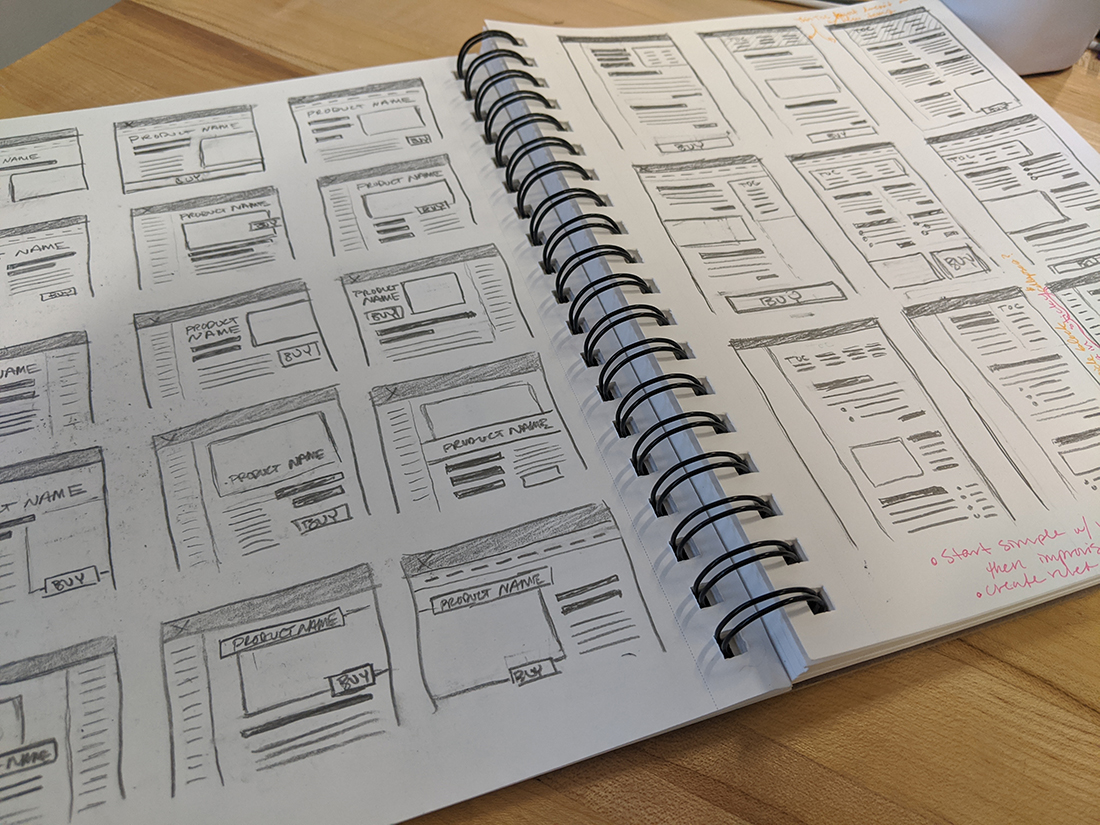 NAME
PRODUCT NAME
BUY
PRODUCT NAME
BUY
NAME
BUY
PRODUCT NAME
BUY
PRODUCT NAME
BUY
NAME
PRODUCT
NAME
BUY
PRODUCT
NAME
BUY
NAME
BUY
PRODUCT NAME
BUY
PRODUCT NAME
NAME
PRODUCT NAME
BUY
PRODUCT NAME
BUY
BUY
BUY
TOC
BUY
TOC
BUY
TOC
BUY
TOC
BUY
TOC
TOC
• Start simple w/
then improvis
• create